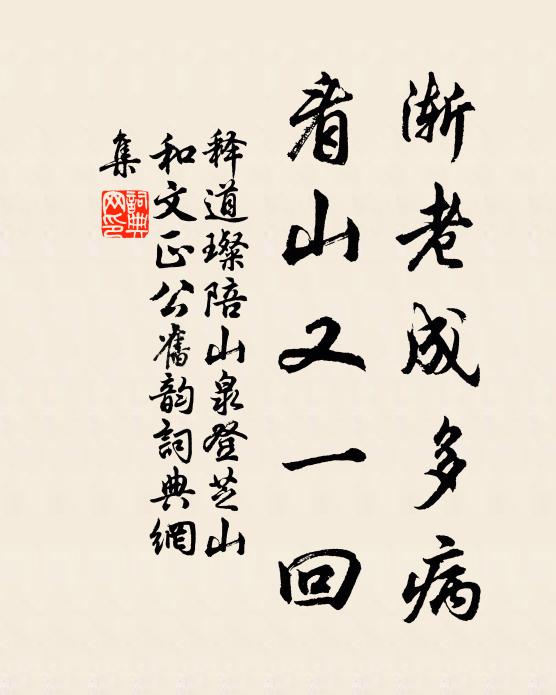 渐老成多病
看山又一回
释道璨陪山泉登芝山
和文正公旧韵詞典網
集
詞典
网印